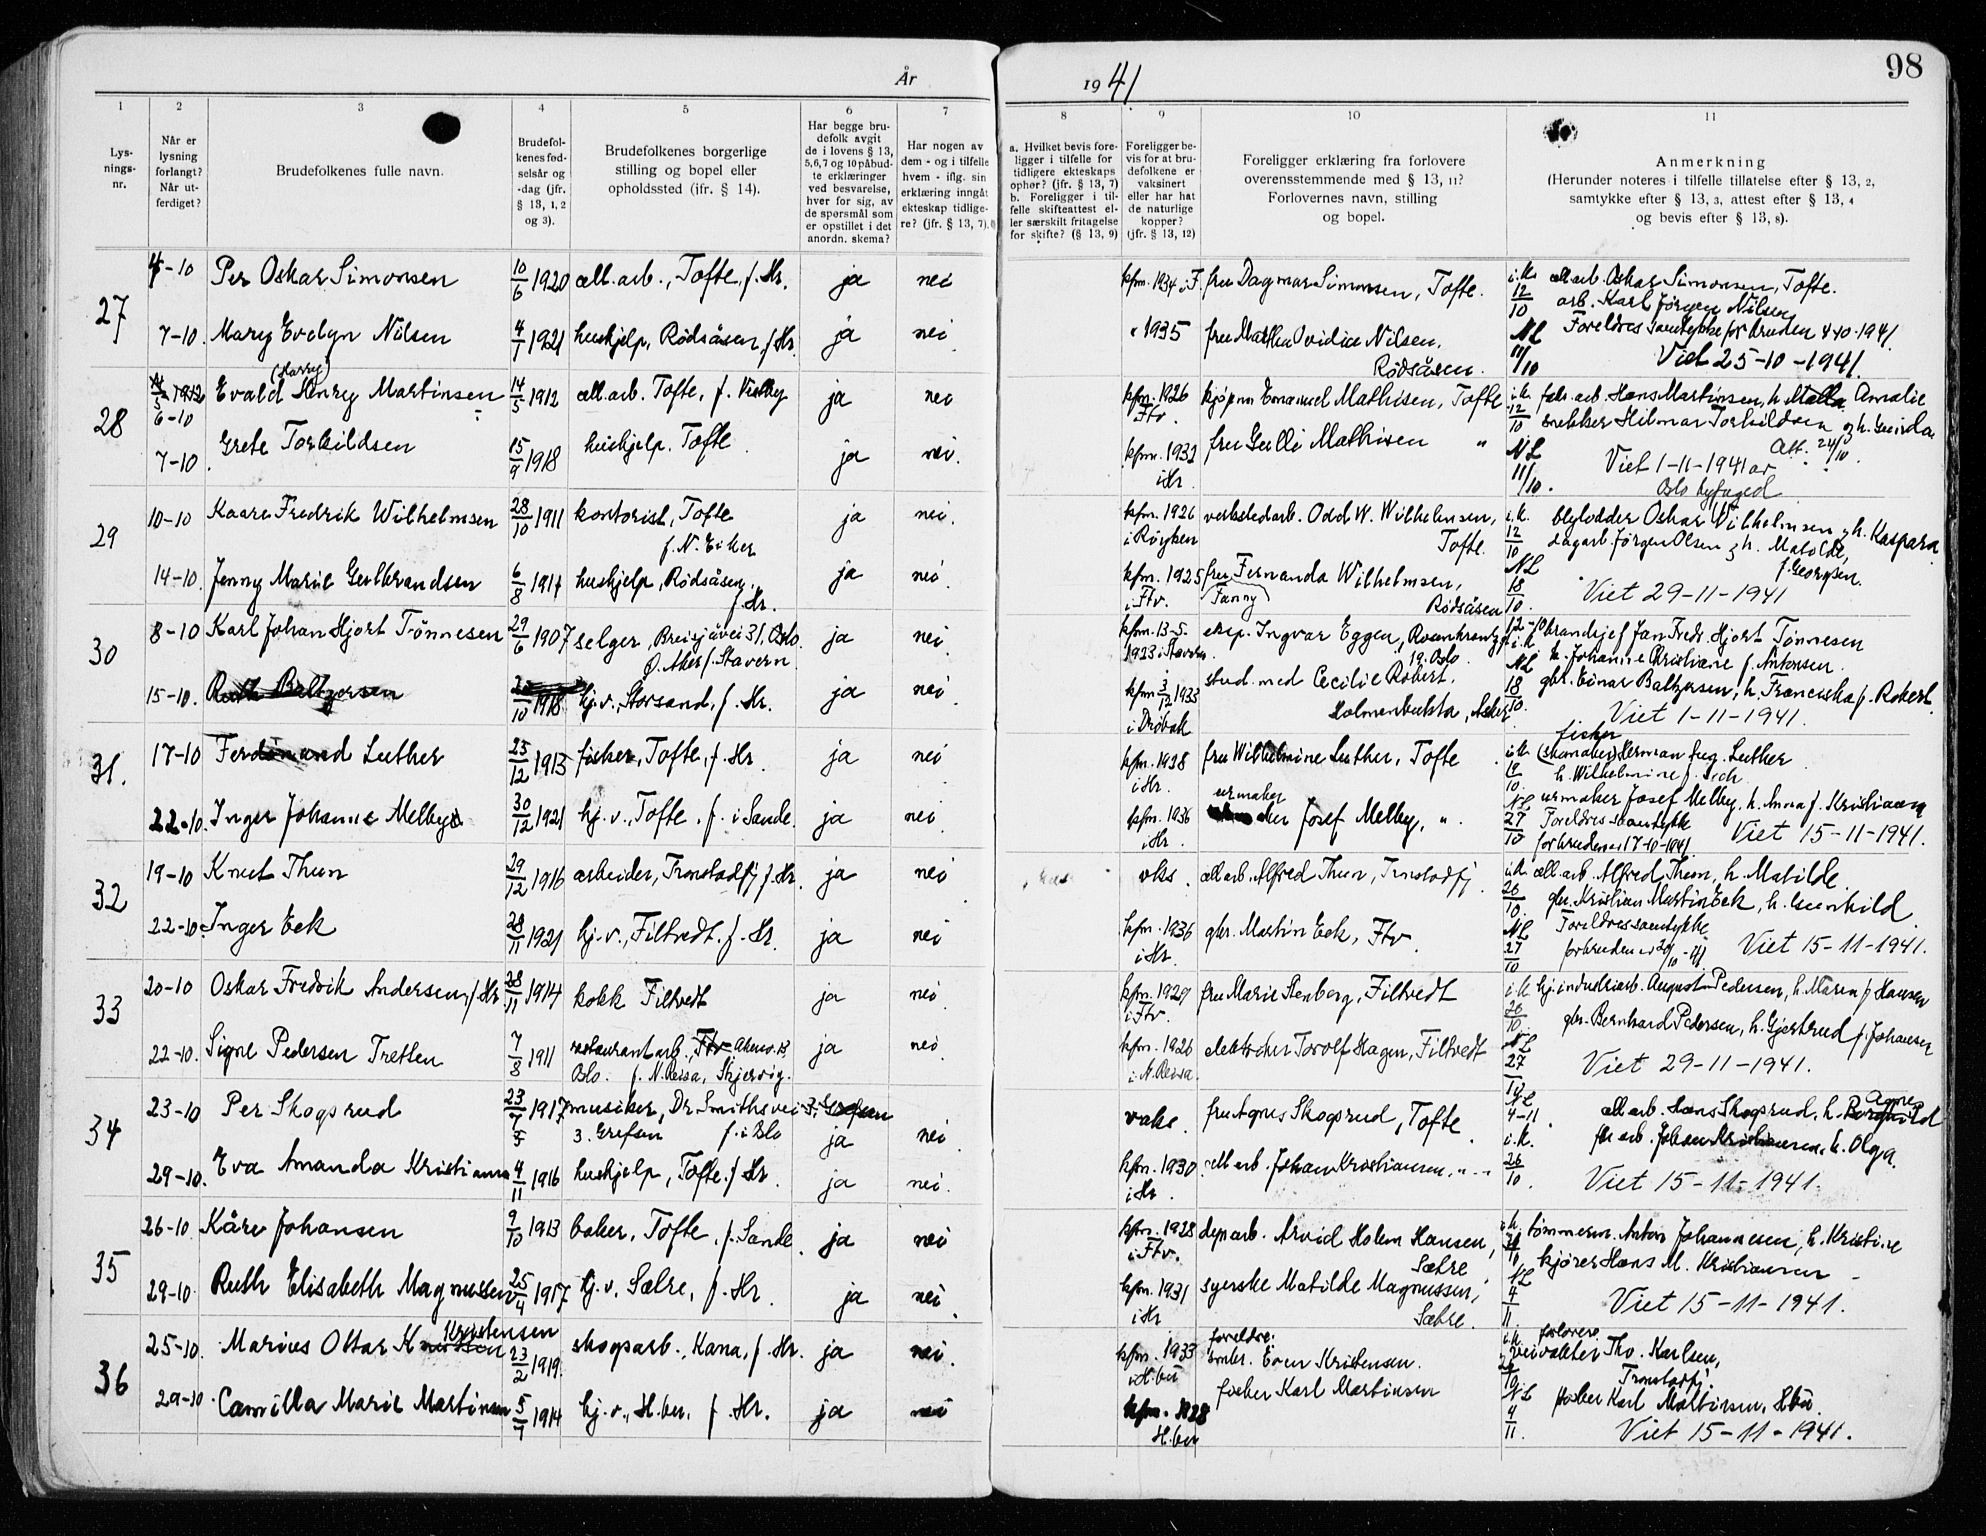 98
År
19 41
1 2 3 4 5 6 7 8 9 10 11
Lys-
nings-
nr.
Når er
lysning
forlangt?
Når ut-
ferdiget?
Brudefolkenes fulle navn.
Brudefol-
kenes fød-
selsår og
-dag (jfr.
§ 13, 1, 2
og 3).
Brudefolkenes borgerlige
stilling og bopel eller
opholdssted (jfr. § 14).
Har begge bru-
defolk avgit
de i lovens § 13,
5, 6, 7 og 10 påbud-
te erklæringer
ved besvarelse,
hver for sig, av
de spørsmål som
er opstillet i det
anordn. skema?
Har nogen av
dem - og i tilfelle
hvem - iflg. sin
erklæring inngått
ekteskap tidlige-
re? (jfr. § 13, 7).
a. Hvilket bevis fore-
ligger i tilfelle for
tidligere ekteskaps
ophør? (jfr. § 13, 7)
b. Foreligger i til-
felle skifteattest el-
ler særskilt fritagelse
for skifte? (§ 13, 9)
Foreligger be-
vis for at bru-
defolkene er
vaksinert
eller har hat
de naturlige
kopper?
(jfr. § 13, 12)
Foreligger erklæring fra forlovere
overensstemmende med § 13, 11?
Forlovernes navn, stilling
og bopel.
Anmerkning
(Herunder noteres i tilfelle tillatelse efter § 13, 2,
samtykke efter § 13, 3, attest efter § 13, 4
og bevis efter § 13, 8).
27
4-10 Per Oskar Simonsen 10/6 1920 cell.arb., Tofte, f. Hr. ja nei kfm. 1934 i F. fru Dagmar Simonsen, Tofte. i.k. 12/10 cell.arb. Oskar Simonsen, Tofte.
arb. Karl Jörgen Nilsen
7-10 Mary Evelyn Nilsen 4/1 1921 hushjelp, Rødsåsen, f. Hr. ja nei " 1935 fru Martha Ovidia Nilsen, NL 11/10 Foreldres samtykke for bruden 4-10-1941.
Rødsåsen. Viet 25-10-1941.
28
6-10 Evald (Harry) Henry Martinsen 14/5 1912 cell.arb. Tofte, f. ja nei kfm. 1926 Ftv. kjøpm Emanuel Mathisen, Tofte i.k. 12/10 fabr. arb. Hans Martinsen, h. Amalie
snekker Hilmar Torkildsen og h.
7-10 Grete Torkildsen 15/9 1918 hushjelp. Tofte ja nei. kfm. 1932 i Hr. fru Gulli Mathisen " NL 11/10. Att. 24/10.
Viet 1-11-1941 av
Oslo byfoged
29
10-10 Kaare Fredrik Wilhelmsen 28/10 1911 kontorist, Tofte ja nei. kfm. 1926 i Røyken verkstedarb. Odd W. Wilhelmsen, i.k. 12/10 Oskar Wilhelmsen og h. Kaspara
f. N. Eiker Tofte. dagarb. Jørgen Olsen og h. Matilde,
14-10. Jenny Marie Gulbrandsen 6/8 1917 hushjelp, Rødsåsen, ja nei kfm. 1925 i Ftv. fru Fernanda Wilhelmsen, NL 18/10. f. Georgsen.
f. Hr. (Fanny) Rødsåsen Viet 29-11-1941
30
8-10 Karl Johan Hjort Tönnesen 29/6 1907 selger, Breisjåvei 31, Oslo. ja nei kfm. 13-5. 1923 i Stavern. eksp. Ingvar Eggen, Rosenkrantzgt 12-10 i.k. brandsjef Jan Fredr. Hjort Tønnesen
Ø. Aker, f. Stavern 19. Oslo. h. Johanne Kristiane f. Antonsen.
15-10. Ruth Baltzersen /10 1918 hj.v., Storsand, f. Hr. ja nei. kfm 3/12 1933 i Drøbak stud. med Cecilie Robert, NL 18/10. gbr. Einar Baltzersen, h. Franciska f. Robert.
Holmenbukta, Asker Viet 1-11-1941.
31.
17-10 Ferdinand Luther 25/12 1913 fisker, Tofte, f. Hr. ja nei kfm. 1928 i Hr. fru Wilhelmine Luther, Tofte i.k. 19/10. fisker (skomaker) Herman Aug. Luther
h. Wilhelmine f.
22-10. Inger Johanne Melby 30/12 1921 hj.v., Tofte, f. i Sande. ja nei kfm. 1936 i Hr. urmaker Josef Melby, ". NL 27/10 urmaker Josef Melby, h. Anna f. Kristiansen
Foreldres samtykke
for bruden er 17-10-1941. Viet 15-11-1941.
32
19-10 Knut Thun 29/12 1916 arbeider, Tronstadfj f. Hr. ja nei vks. cell arb. Alfred Thun, Tronstadfj. i.k. 26/10. cell. arb. Alfred Thun, h. Matilde.
gbr. Kristian Martin Eek, h. Gunhild.
22-10. Inger Eek 28/11 1921 hj.v., Filtvedt. f. Hr. ja nei kfm. 1936 i Hr. gbr. Martin Eek, Ftv. NL 27/10 Foreldressamtykke
for bruden er 20/10-41 Viet 15-11-1941.
33
20-10 Oskar Fredrik Andersen, f. Hr. 28/11 1914 kokk Filtvedt ja nei. kfm. 1929 i Ftv. fru Marie Stenberg, Filtvedt i.k. 26/10. hj.industriarb. August Pedersen, h. Maren f. Hansen
gbr. Bernhard Pedersen, h. Gjertrud f. Johansen
22-10. Signe Pedersen Tretten 7/8 1911 restaurantarb., Ftv. ja nei kfm. 1926 i N. Reisa. elektriker Torolf Hagen, Filtvedt NL 27/10 Viet 29-11-1941.
Oslo. f. N. Reisa, Skjervøy.
34
23-10 Per Skogsrud 23/7 1917 musiker, Dr. Smithsvei 3. Grefsen vaks. fru Agnes Skogsrud, Tofte. NL 4-11. cell arb. Hans Skogsrud, h. Agnes Borghild
3. Grefsen f. i Oslo ja nei. i.k. arb. Johan Kristiansen, h. Olga.
29-10. Eva Amanda Kristiansen 4/11 1916 hushjelp, Tofte. f. Hr. ja nei. kfm. 1930 i Hr. cell arb. Johan Kristiansen, " - " 26/10. Viet 15-11-1941.
35
26-10 Kåre Johansen 9/10 1913 baker, Tofte, f. Sande. ja nei kfm. 1928 i Ftv. dynarb. Arvid Holm Hansen, i.k. tømmerm. Anton Johannesen, h. Kristine
Sætre. kjører Hans M. Kristiansen
29-10. Ruth Elisabeth Magnussen 25/4 1917 hj.v. Sætre, f. Hr. ja nei. kfm. 1931 i Hr syerske Matilde Magnussen, NL 4/11.
Sætre. Viet 15-11-1941.
36
25-10. Marius Ottar Knudsen Kristensen 23/2 1919. skogsarb., Kana, f. Hr. ja nei. kfm. 1933 i H.bu foreldre: Even Kristensen. i.k. 26/10 forlovere veivokter Tho. Karlsen,
Tronstadfj
29-10 Camilla Marie Martinsen 5/7 1914 hj.v., H.bu, f. Hr. ja nei kfm. 1928 H.bu fisker Karl Martinsen NL 4/11. fisker Karl Martinsen, Hbu.
Viet 15-11-1941.